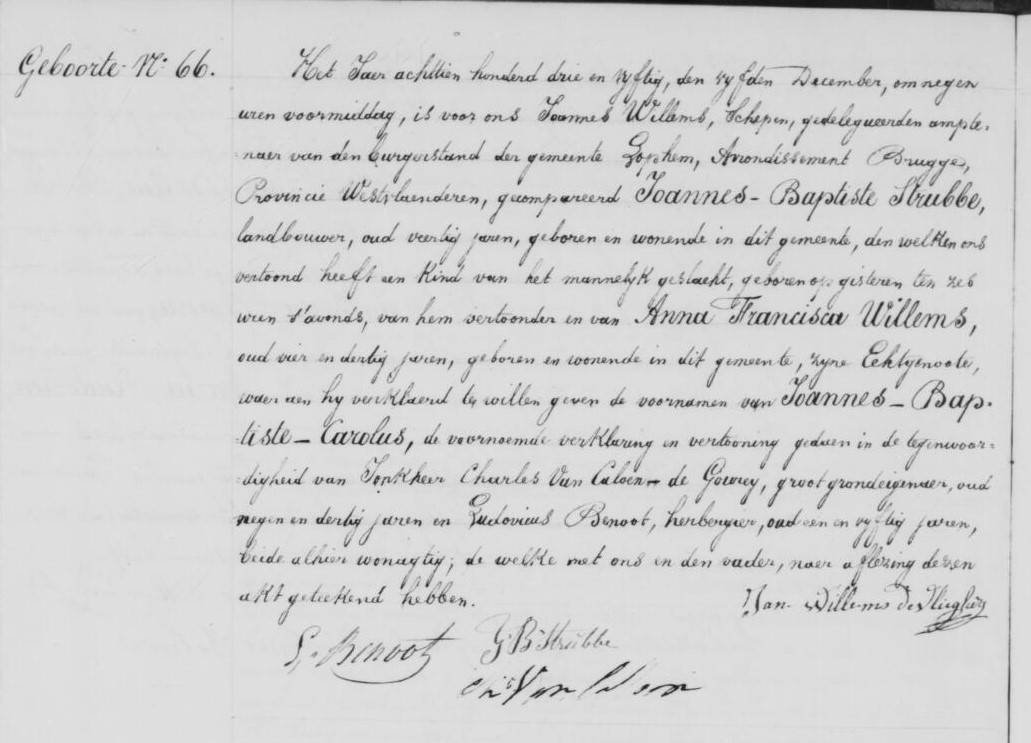 Geboorte N: 66.
Het Jaer achttien honderd drie en vyftig, den vyfden December, om negen
uren voormiddag, is voor ons Joannes Willems, Schepen, gedelegueerden ampte-
-naer van den burgerstand der gemeente Lophem, Arrondissement Brugge,
Provincie Westvlaenderen, gecompareerd Joannes-Baptiste Strubbe,
landbouwer, oud veertig jaren, geboren en wonende in dit gemeente, den welken ons
vertoond heeft een kind van het mannelyk geslacht, geboren op gisteren ten zes
uren s'avonds, van hem vertoonder en van Anna Francisca Willems,
oud vier en dertig jaren, geboren en wonende in dit gemeente, zyne Echtgenoote,
waer aen hy verklaerd te willen geven de voornamen van Joannes-Bap-
-tiste-Carolus, de voornoemde verklaring en vertooning gedaen in de tegenwoor-
-digheid van Jonkheer Charles Van Caloen-de Gourey, groot grondeigenaer, oud
negen en dertig jaren en Ludovicus Benoot, herbergier, oud een en vyftig jaren,
beide alhier wonagtig; de welke met ons en den vader, naer aflezing dezen
akt geteekend hebben.
Jan Willems
L. Benoot J B Strubbe
Van Caloen